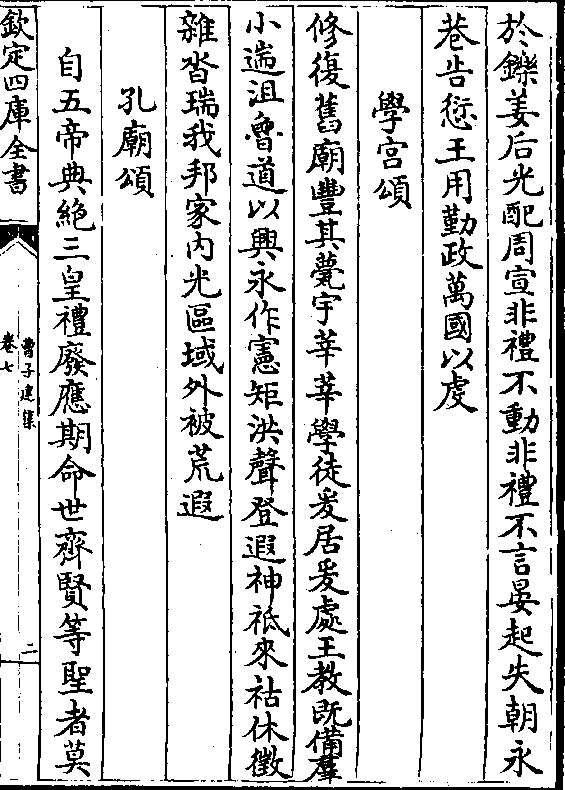 於鑠姜后光配周宣非禮不動非禮不言晏起失朝永
巷告愆王用勤政萬國以虔
學宮頌
修復舊廟豐其甍宇莘莘學徒爰居爰處王教既備羣
小遄沮魯道以興永作憲矩洪聲登遐神祗來祜休徵
雜沓瑞我邦家內光區域外被荒遐
孔廟頌
自五帝典絶三皇禮廢應期命世齊賢等聖者莫
欽定四庫全書
曹子建集
卷七
二